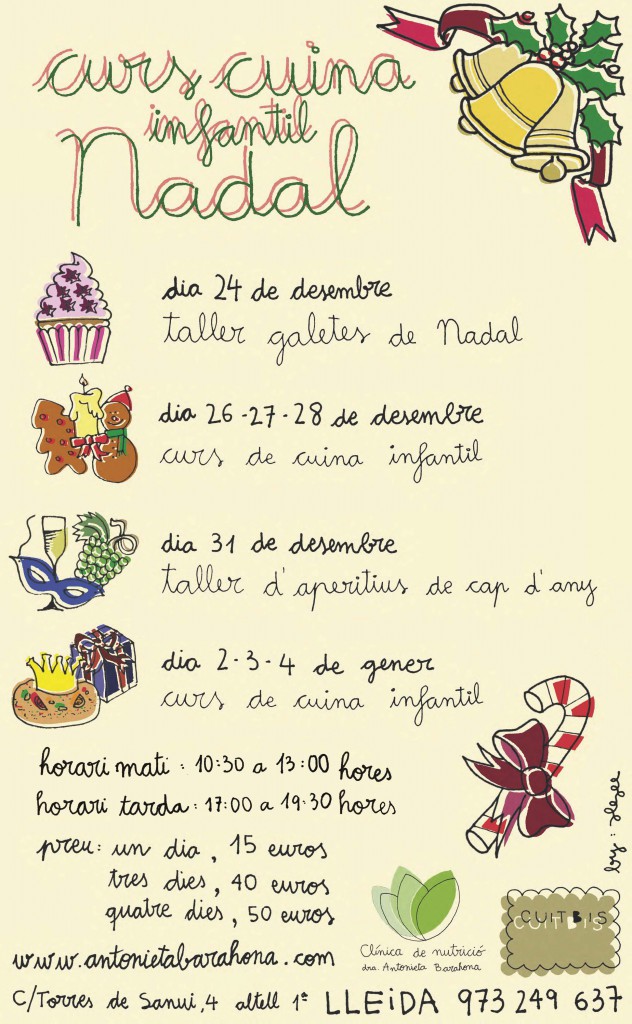 curs cuina
infantil
Nadal
dia 24 de desembre
taller galetes de Nadal
dia 26-27-28 de desembre
curs de cuina infantil
dia 31 de desembre
taller d'aperitius de cap d'any
dia 2-3-4 de gener
curs de cuina infantil
horari mati : 10:30 a 13:00 hores
horari tarda: 17:00 a 19:30 hores
preu: un dia, 15 euros
tres dies, 40 euros
quatre dies, 50 euros
by:
Clínica de nutrició
dra. Antonieta Barahona
CUITBIS
www.antonietabarahona.com
C/Torres de Sanui,4 altell 1ª LLEIDA 973 249 637